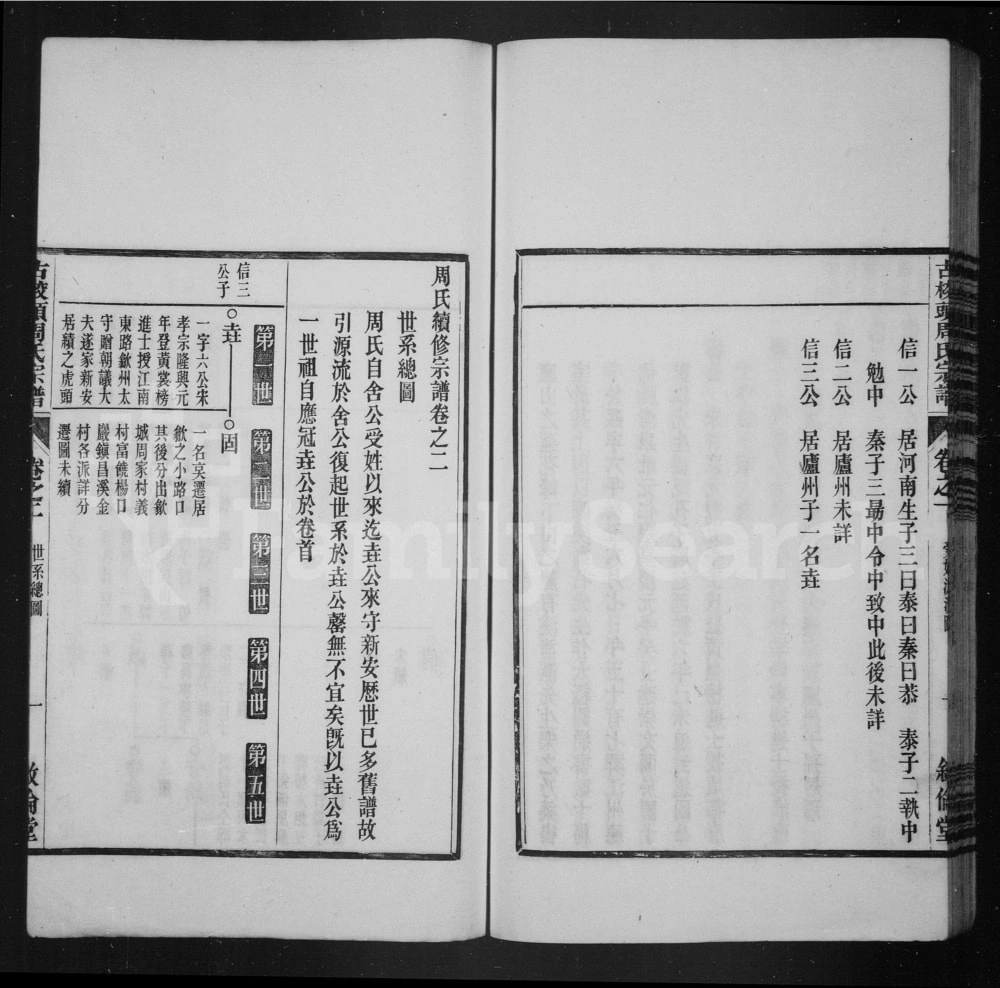 信一公　居河南生子三曰泰曰秦曰恭　泰子二執中
勉中　秦子三勗中令中致中此後未詳
信二公　居廬州未詳
信三公　居廬州子一名垚
周氏續修宗譜卷之二
世系總圖
周氏自舍公受姓以來迄垚公來守新安歷世已多舊譜故
引源流於舍公復起世系於垚公罄無不宜矣旣以垚公爲
一世祖自應冠垚公於卷首
第一世　第二世　第三世　第四世　第五世
信三
公子
垚
固
一字六公宋
孝宗隆興元
年登黄裳榜
進士授江南
東路歙州太
守贈朝議大
夫遂家新安
居績之虎頭
一名奕遷居
歙之小路口
其後分出歙
城周家村義
村富饒楊口
巖鎮昌溪金
村各派詳分
遷圖未續
卷之二
世系總圖
一
敘倫堂
FamilySearch